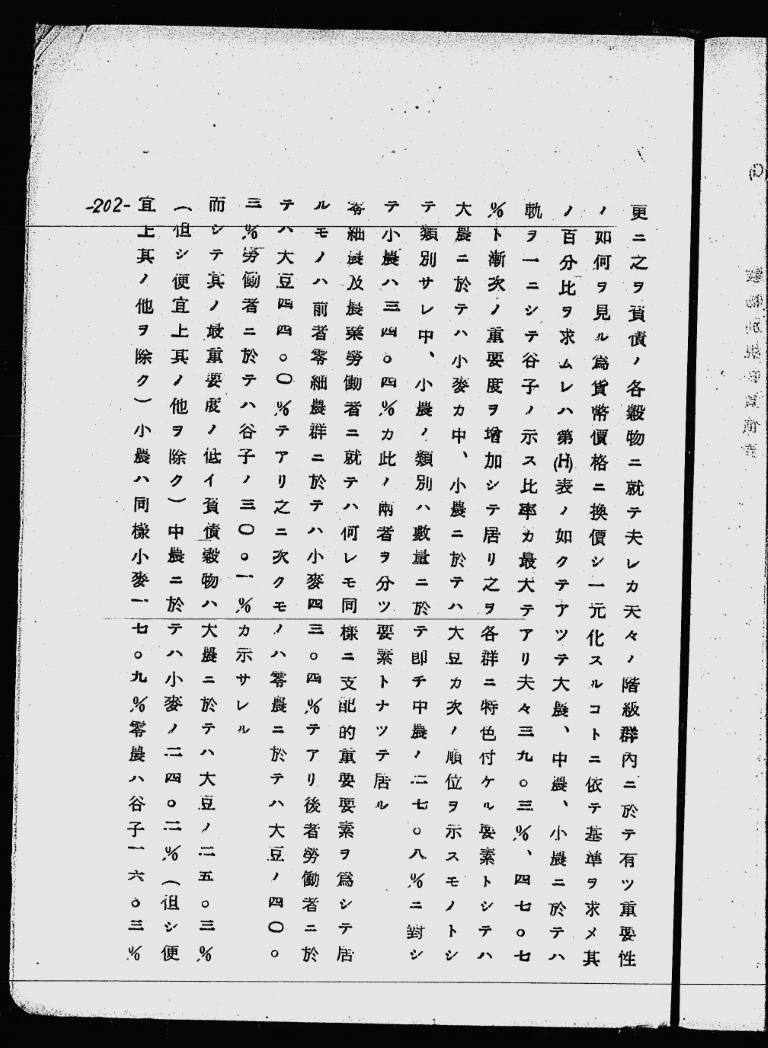 更ニ之ヲ負債ノ各穀物ニ就テ夫レカ夫々ノ階級群內ニ於テ有ツ重要性
ノ如何ヲ見ル爲貨幣價格ニ換價シ一元化スルコトニ依テ基準ヲ求メ其
ノ百分比ヲ求ムレハ第(H)表ノ如クテアツテ大農、中農、小農ニ於テハ
軌ヲ一ニシテ谷子ノ示ス比率カ最大テアリ夫々三九。三%、四七。七
%ト漸次ノ重要度ヲ增加シテ居リ之ヲ各群ニ特色付ケル要素トシテハ
大農ニ於テハ小麥カ中、小農ニ於テハ大豆カ次ノ順位ヲ示スモノトシ
テ類別サレ中、小農ノ類別ハ數量ニ於テ卽チ中農ノ二七。八%ニ對シ
テ小農ハ三四。四%カ此ノ兩者ヲ分ツ要素トナツテ居ル
零細農及農業勞働者ニ就テハ何レモ同樣ニ支配的重要要素ヲ爲シテ居
ルモノハ前者零細農群ニ於テハ小麥四三。四%テアリ後者勞働者ニ於
テハ大豆四四。〇%テアリ之ニ次クモノハ零農ニ於テハ大豆ノ四〇。
三%勞働者ニ於テハ谷子ノ三〇。一%カ示サレル
而シテ其ノ最重要度ノ低イ負債穀物ハ大農ニ於テハ大豆ノ二五。三%
（但シ便宜上其ノ他ヲ除ク）中農ニ於テハ小麥ノ二四。二%（但シ便
宜上其ノ他ヲ除ク）小農ハ同樣小麥一七。九%零農ハ谷子一六。三%
-202-